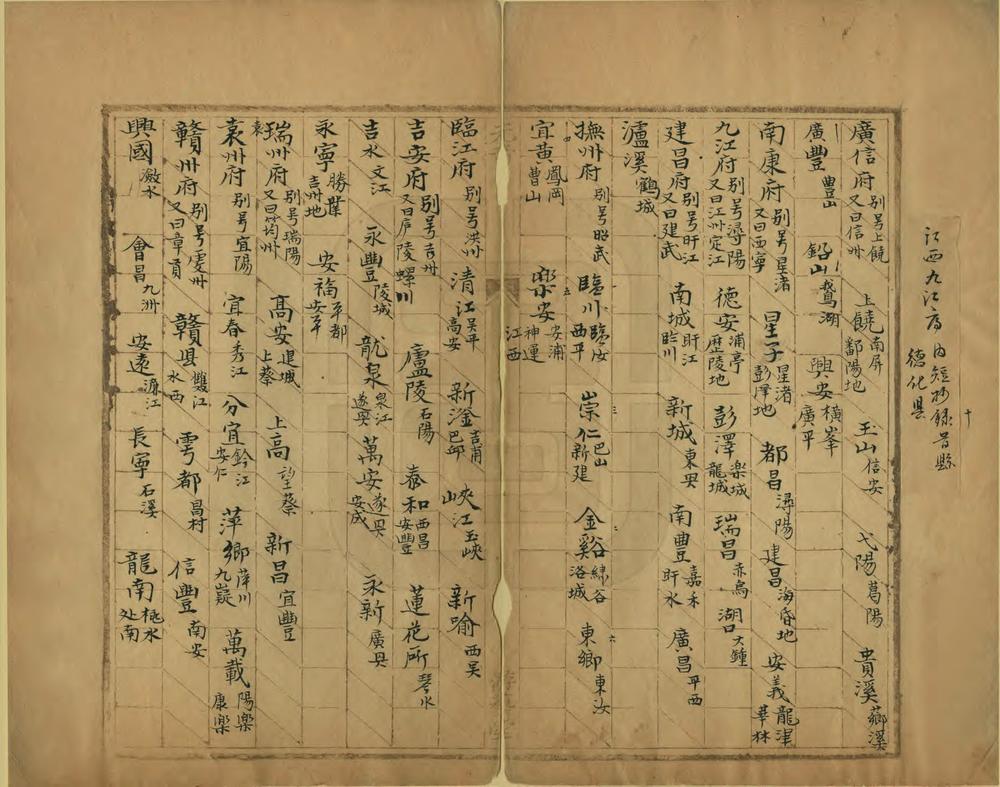 十
江西九江府內短抄錄首縣
德化縣
廣信府 別号上饒 又曰信州 上饒 南屏 鄱陽地 玉山 信安 弋陽 葛陽 貴溪 薌溪
廣豐 豊山 鉛山 鵞湖 興安 橫峯 廣平
南康府 別号星渚 又曰西寧 星子 星渚 彭澤地 都昌 潯陽 建昌 海昏地 安義 龍津 華林
九江府 別号潯陽 又曰江州定江 德安 浦亭 歷陵地 彭澤 楽城 龍城 瑞昌 赤烏 湖口 大鍾
建昌府 別号旴江 又曰建武 南城 旴江 臨川 新城 東興 南豊 嘉禾 旴水 廣昌 平西
瀘溪 鶴城
撫州府 別号昭武 臨川 臨汝 西平 崇仁 巴山 新建 金谿 繡谷 洛城 東鄉 東汝
宜黃 鳳岡 曹山 樂安 安浦 神運 江西
臨江府 別号洪州 清江 吴平 高安 新淦 吉甫 巴邱 峽江 玉峽 新喻 西吴
吉安府 別号吉州 又曰庐陵 螺川 廬陵 石陽 泰和 西昌 安豐 蓮花所 琴水
吉水 文江 永豐 陵城 龍泉 泉江 遂興 萬安 遂興 安成 永新 廣興
永寧 勝業 吉州地 安福 平都 安平
瑞州府 別号瑞陽 又曰筠州 高安 建城 上蔡 上高 望蔡 新昌 宜豐
袁州府 別号宜陽 宜春 秀江 分宜 鈐江 安仁 萍鄉 萍川 九嶷 萬載 陽樂 康樂
贛州府 別号虔州 又曰章貢 贛县 雙江 水西 雩都 昌村 信豐 南安
興國 瀲水 會昌 九洲 安遠 濂江 長寧 石溪 龍南 極水 处南